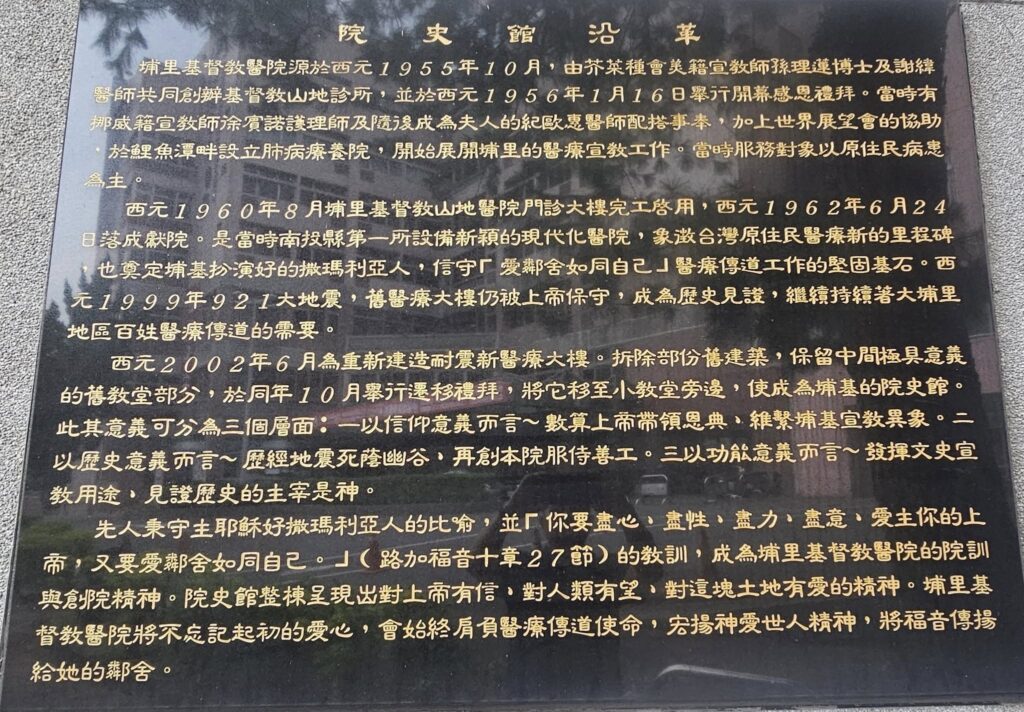 院史館沿革
埔里基督教醫院源於西元1955年10月，由芥菜種會美籍宣教師孫理蓮博士及謝緯
醫師共同創辦基督教山地診所，並於西元1956年1月16日舉行開幕感恩禮拜。當時有
挪威籍宣教師徐賓諾護理師及隨後成為夫人的紀歐惠醫師配搭事奉，加上世界展望會的協助
，於鯉魚潭畔設立肺病療養院，開始展開埔里的醫療宣教工作。當時服務對象以原住民病患
為主。
西元1960年8月埔里基督教山地醫院門診大樓完工啓用，西元1962年6月24
日落成獻院。是當時南投縣第一所設備新穎的現代化醫院，象徵台灣原住民醫療新的里程碑
，也奠定埔基扮演好的撒瑪利亞人，信守「愛鄰舍如同自己」醫療傳道工作的堅固基石。西
元1999年921大地震，舊醫療大樓仍被上帝保守，成為歷史見證，繼續持續著大埔里
地區百姓醫療傳道的需要。
西元2002年6月為重新建造耐震新醫療大樓。拆除部份舊建築，保留中間極具意義
的舊教堂部分，於同年10月舉行遷移禮拜，將它移至小教堂旁邊，使成為埔基的院史館。
此其意義可分為三個層面：一以信仰意義而言～數算上帝帶領恩典、維繫埔基宣教異象。二
以歷史意義而言～歷經地震死蔭幽谷，再創本院服侍善工。三以功能意義而言～發揮文史宣
教用途，見證歷史的主宰是神。
先人秉守主耶穌好撒瑪利亞人的比喻，並「你要盡心、盡性、盡力、盡意、愛主你的上
帝，又要愛鄰舍如同自己。」（路加福音十章27節）的教訓，成為埔里基督教醫院的院訓
與創院精神。院史館整棟呈現出對上帝有信、對人類有望、對這塊土地有愛的精神。埔里基
督教醫院將不忘記起初的愛心，會始終肩負醫療傳道使命，宏揚神愛世人精神，將福音傳揚
給她的鄰舍。